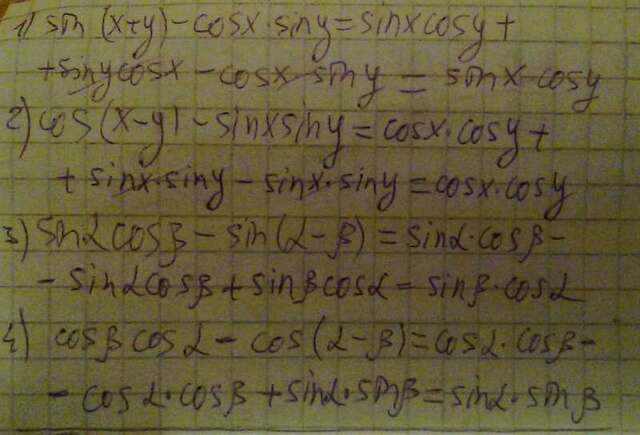 1) sin (x+y) - cosx · siny = sinx cosy +
+ siny cosx - cosx · siny = sinx · cosy
2) cos (x-y) - sinx siny = cosx · cosy +
+ sinx · siny - sinx · siny = cosx · cosy
3) sinα cosβ - sin(α - β) = sinα · cosβ -
- sinα cosβ + sinβ cosα = sinβ · cosα
4) cosβ cosα - cos(α-β) = cosα · cosβ -
- cosα · cosβ + sinα · sinβ = sinα · sinβ